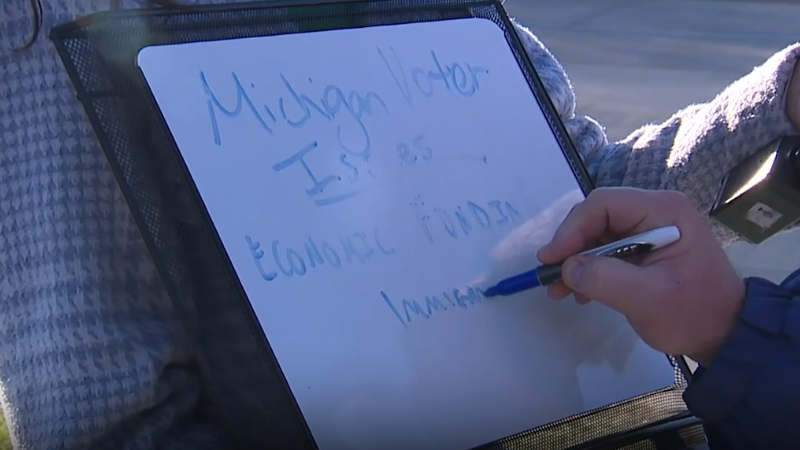 Michigan Voter
Issues
ECONOMIC FUNDIN
IMMIGR